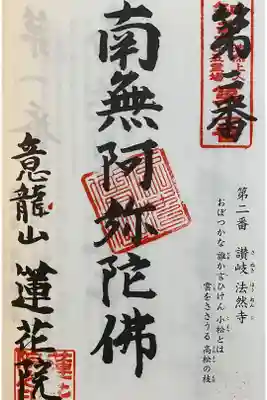 第二番
第二番 讃岐 法然寺
おぼつかな 誰か言ひけん 小松とは
雲をささうる 高松の枝
南無阿弥陀佛
意龍山 蓮花院